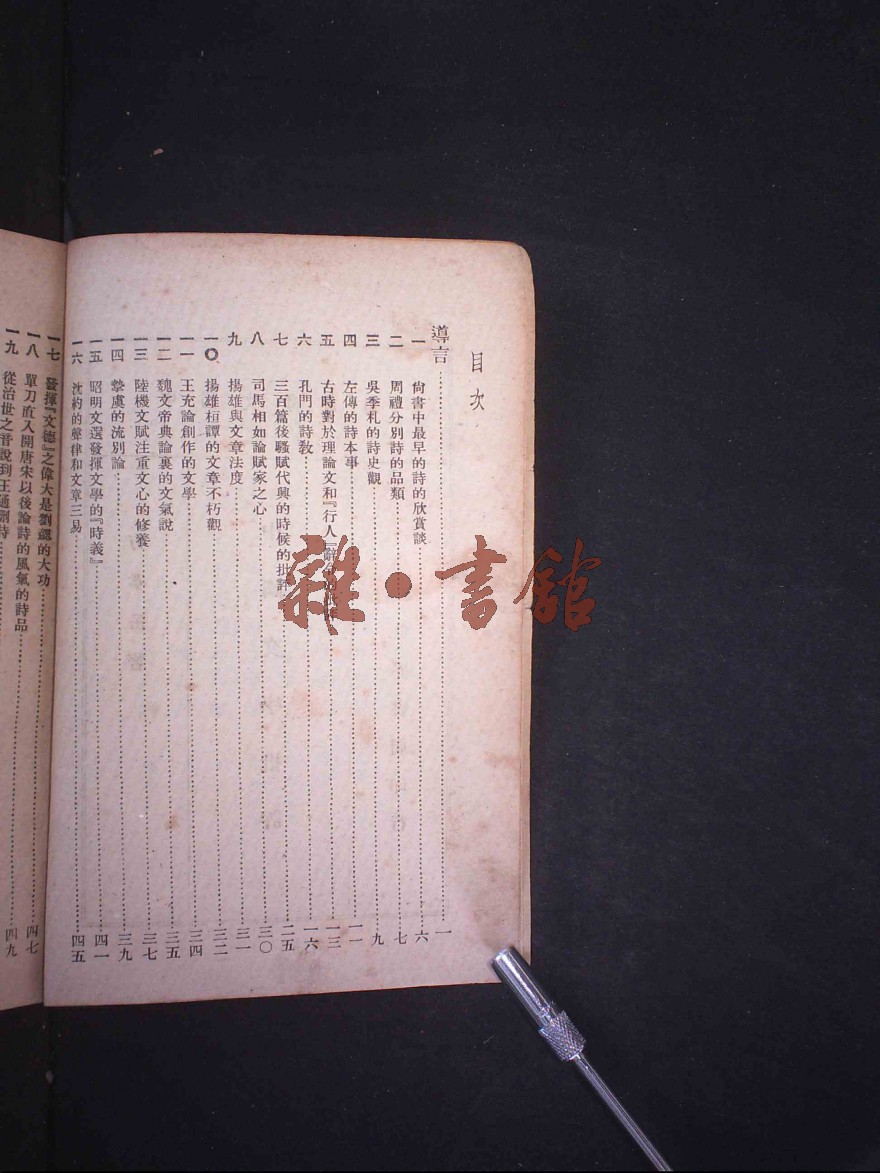 目次
導言……一
一 尙書中最早的詩的欣賞談……六
二 周禮分別詩的品類……七
三 吳季札的詩史觀……九
四 左傳的詩本事……一一
五 古時對於理論文和『行人』辭……一三
六 孔門的詩敎……一六
七 三百篇後騷賦代興的時候的批評……二五
八 司馬相如論賦家之心……三〇
九 揚雄與文章法度……三一
一〇 揚雄桓譚的文章不朽觀……三二
一一 王充論創作的文學……三四
一二 魏文帝典論裏的文氣說……三五
一三 陸機文賦注重文心的修養……三七
一四 摯虞的流別論……三九
一五 昭明文選發揮文學的『時義』……四一
一六 沈約的聲律和文章三易……四五
一七 發揮『文德』之偉大是劉勰的大功
一八 單刀直入開唐宋以後論詩的風氣的詩品……四七
一九 從治世之音說到王通刪詩……四九
雜·書館